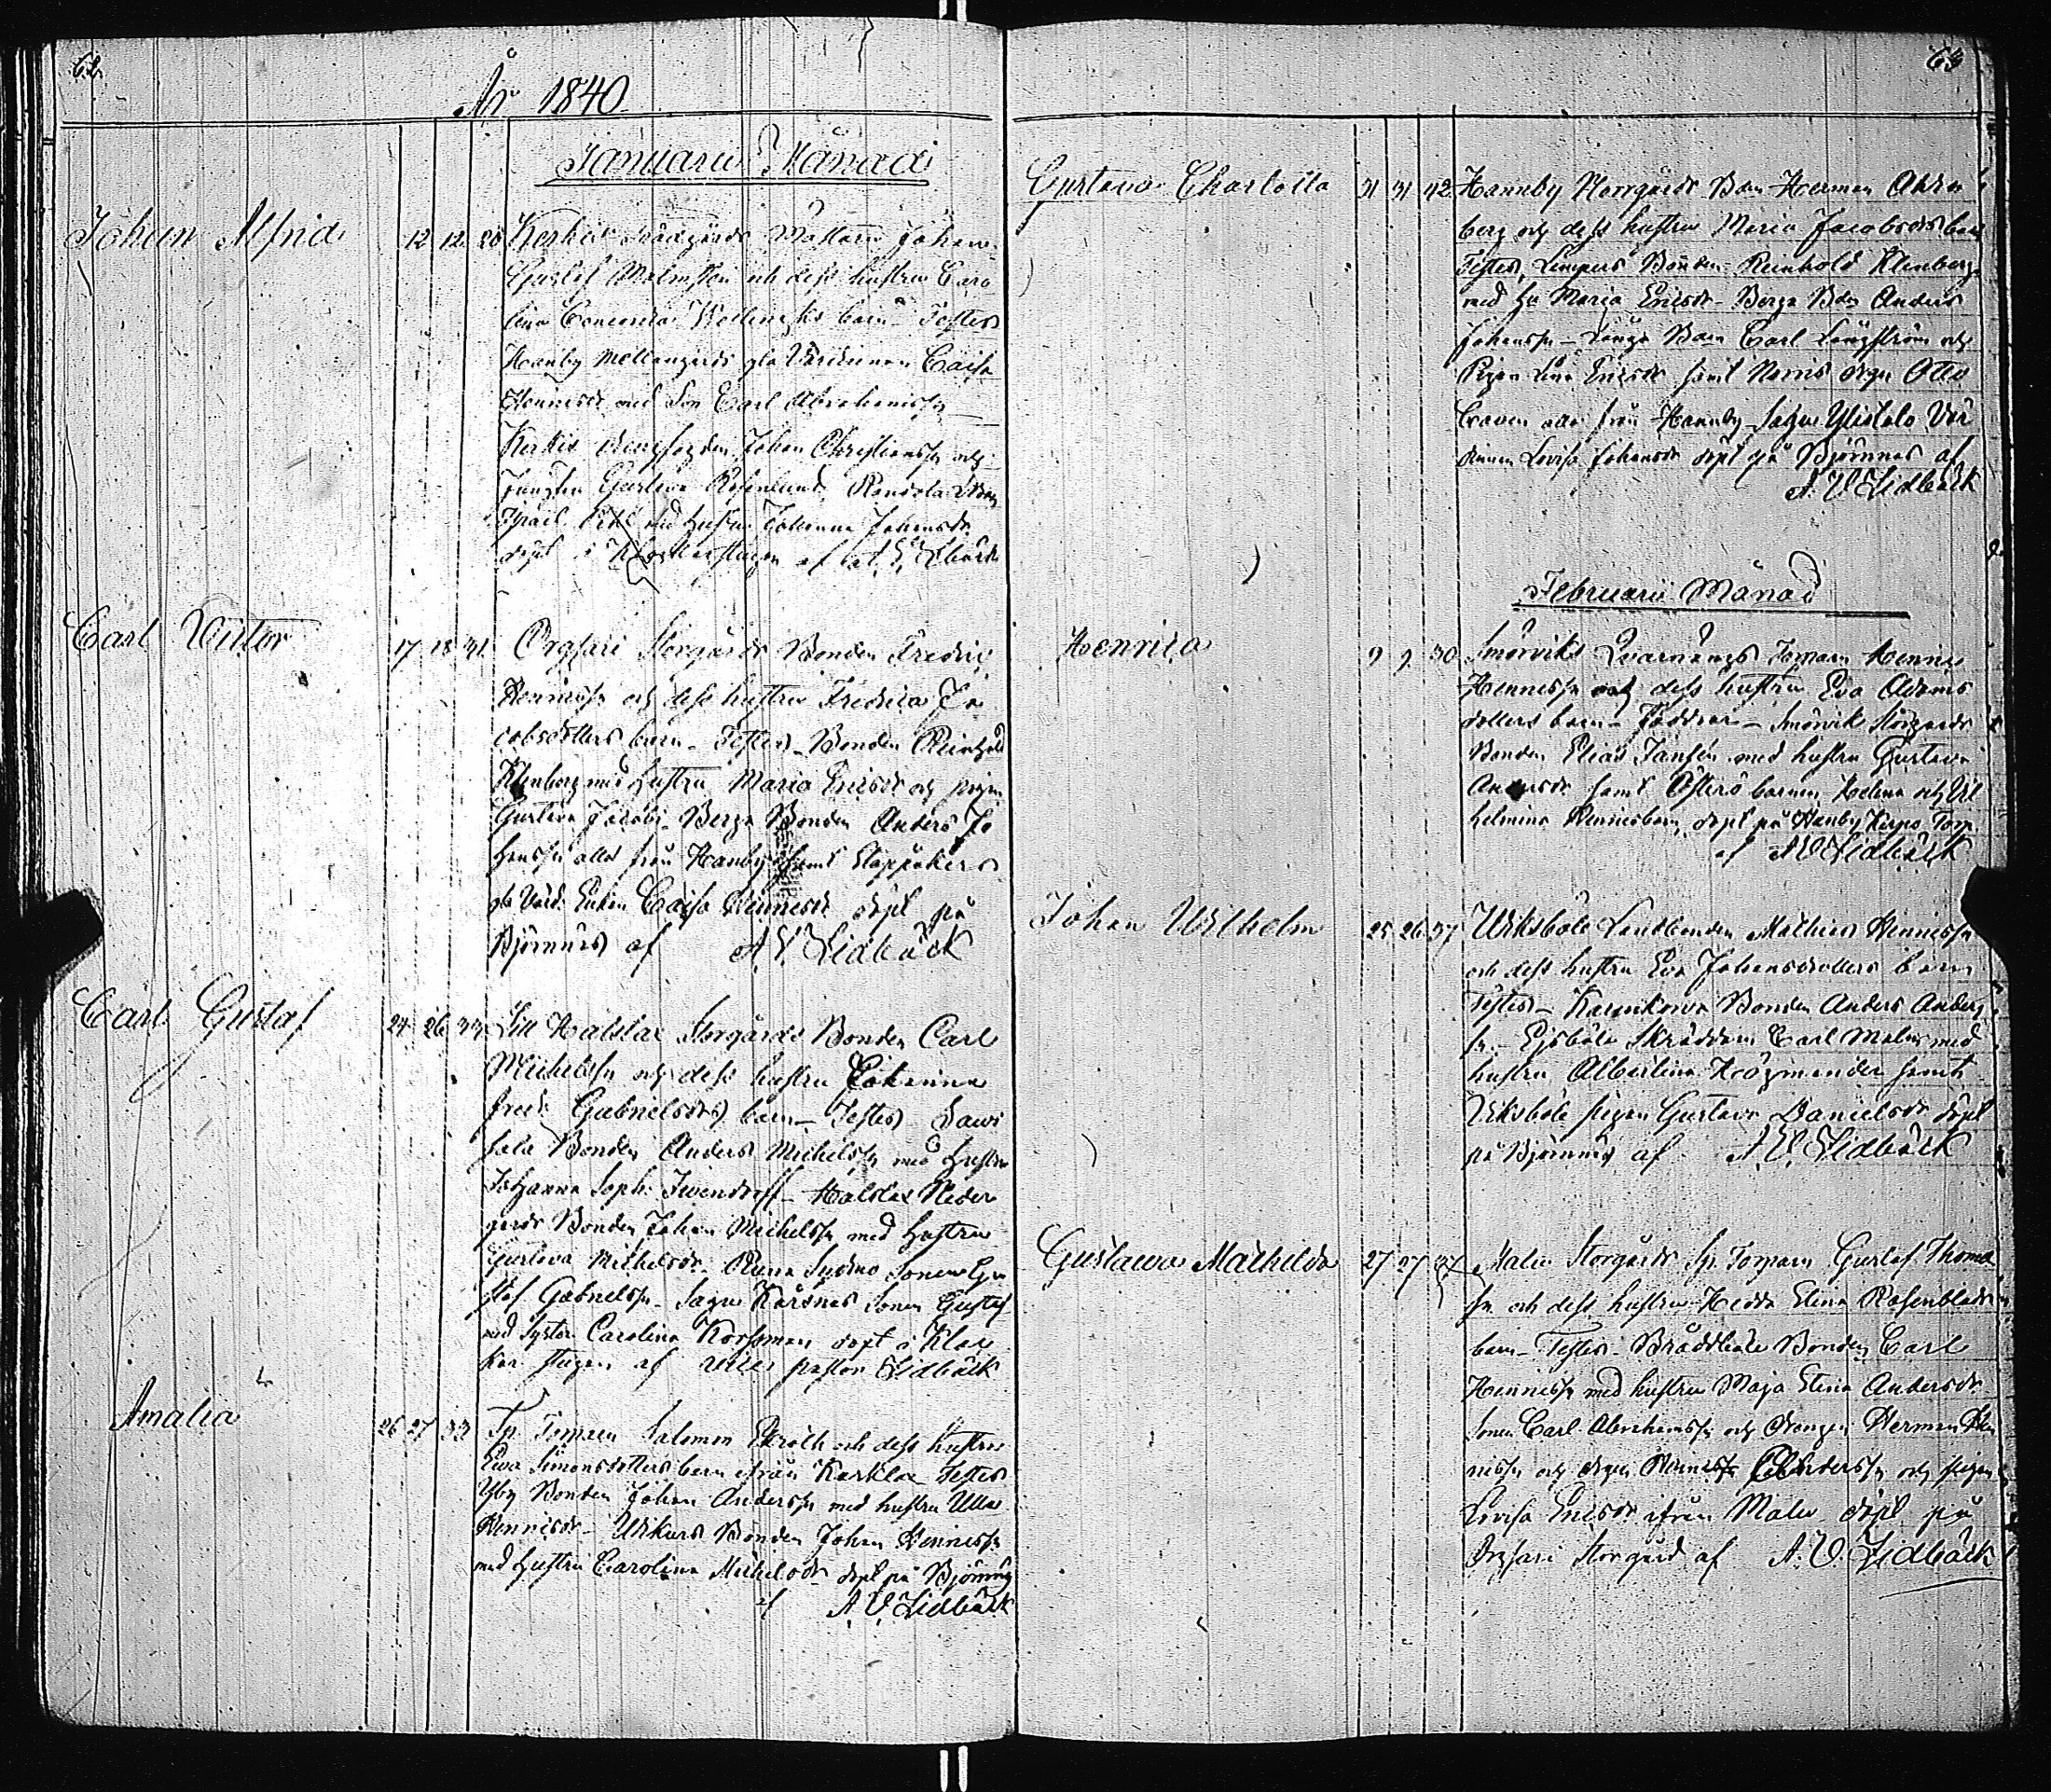 62
År 1840
Januarii Månad
Johan Alfrid 12 12 28 Kerkis Trädgårds Mästarn Johan
Gustaf Malmsten och dess hustru Caro
lina Concordia barn Testes
Hanby Mellangårds gla Värdinnan Caisa
Hennisdr med Son Carl Abrahamsson
Kerkis Johan Christiansson och
Jungfru Gustava Rosenlund
med hustru Johanna Johansdr
döpt i Klockarstugan af A. V. Lidbäck
Carl Victor 17 18 31 Orgsari Storgårds Bonden Fredric
Hennisson och dess hustru Fredrica Ja
cobsdotters barn Testes Bonden Reinhold
Klenberg med hustru Maria Ericsdr och pigan
Gustava Jacobs Berga Bonden Anders Jo
hansson alla från Hanby samt Klappåkers
gla Värd. Enkan Caisa Hennisdr döpt på
Björnnäs af A. V. Lidbäck
Carl Gustaf 24 26 33 Lill Halslax Storgårds Bonden Carl
Michelsson och dess hustru Johanna
Fredr. Gabrielsdrs barn Testes
Bonden Anders Michelsson med hustru
Johanna Soph. Halslax Neder
gårds Bonden Johan Michelsson med hustru
Gustava Michelsdr Sonen Gu
staf Gabrielsson Sagu Karsnäs Sonen Gustaf
med Syster Carolina Korsman döpt i Kloc
kar stugan af vice pastor Lidbäck
Amalia 26 27 33 Sp. Torparn Salomon och dess hustru
Eva Simonsdotters barn ifrån Karklax Testes
Yby Bonden Johan Andersson med hustru Ulla
Hennisdr Bonden Johan Hennisson
med hustru Carolina Michelsdr döpt på Björnnäs
af A. V. Lidbäck
63
Gustava Charlotta 31 31 42 Hannby Norrgårds Bdn Herman Ahrn
berg och dess hustru Maria Jacobsdrs barn
Testes, Lempers Bonden Reinhold Klenberg
med hu Maria Ericsdr Berga Bdn Anders
Johansson Långs Bdn Carl Långström och
Pigan Lena Ericsdr samt Norris drgn Otto
alla från Hannby Sagu Ylistalo Vär
dinnan Lovisa Johansdr döpt på Björnnäs af
A. V. Lidbäck
Februarii Månad
Henrica 9 9 30 Smörviks Qvarnängs Torparn Hennis
Hennisson och dess hustru Eva Adams
dotters barn Faddrar Smörvik Storgårds
Bonden Elias Jansén med hustru Gustava
Andersdr samt Österö barnen Helena och Vil
helmina Hennisbarn, döpt på Hanby Torp
af A. V. Lidbäck
Johan Wilhelm 25 26 37 Wiksböle Landbonden Mathias Hennisson
och dess hustru Eva Johansdotters barn
Testes Bonden Anders Anders
sn Ejsböle Skräddarn Carl Malm med
hustru Albertina Krögmander samt
Viksböle pigan Gustava Danielsdr döpt
på Björnnäs af A. V. Lidbäck
Gustawa Mathilda 27 27 37 Malu Storgårds Sp. Torparn Gustaf Thoma
sn och dess hustru Hedda Elina Rosenblads
barn Testes Bråddböle Bonden Carl
Hennisson med hustru Maja Stina Andersdr
Sonen Carl Abrahamsson och Drengen Herman Hen
nisson och drgn Hennis Andersson och pigan
Lovisa Ericsdr ifrån Malu döpt på
Orgsari Storgård af A. V. Lidbäck